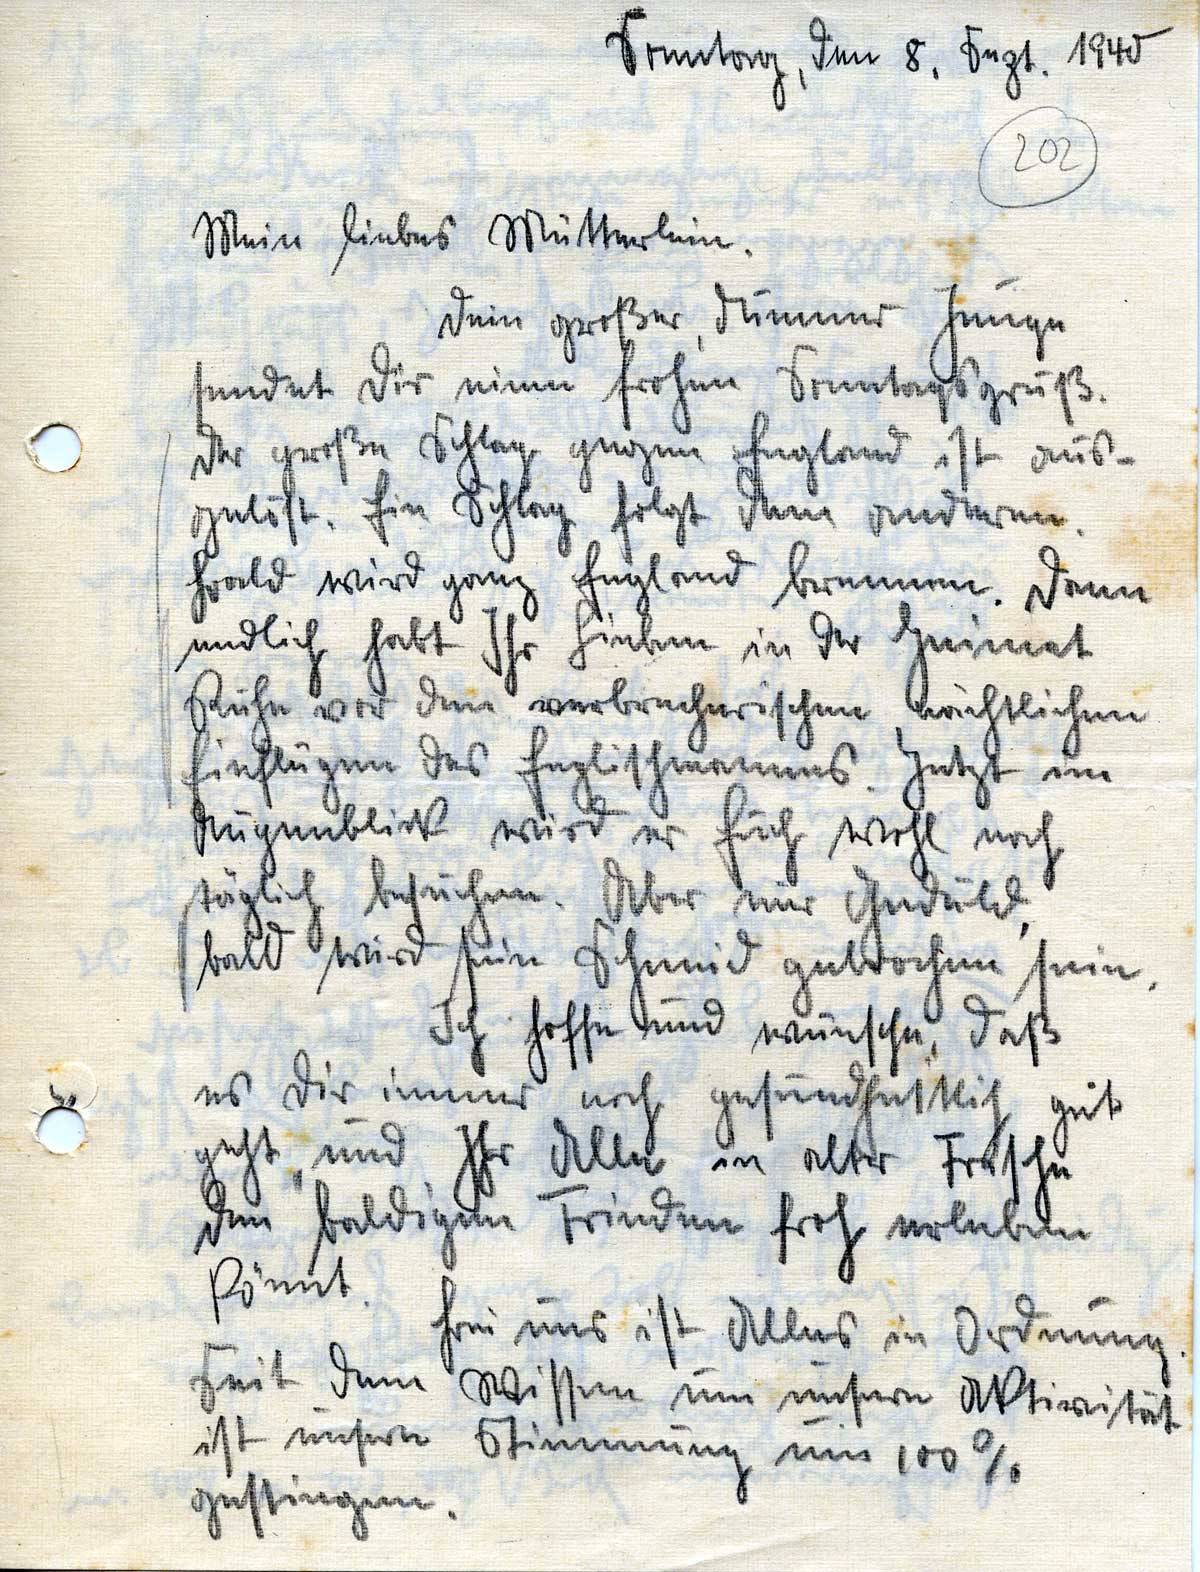 Sonntag, den 8. Sept. 1940
202
Mein liebes Mütterlein.
Dein großer, dummer Junge
sendet Dir einen frohen Sonntagsgruß.
Der große Schlag gegen England ist aus-
gelöst. Ein Schlag folgt dem anderen.
Bald wird ganz England brennen. Dann
endlich habt Ihr Lieben in der Heimat
Ruhe vor den verbrecherischen nächtlichen
Einflügen des Engländers. Jetzt im
Augenblick wird er Euch wohl noch
täglich besuchen. Aber nur Geduld,
bald wird sein Schneid gebrochen sein.
Ich hoffe und wünsche, daß
es Dir immer noch gesundheitlich gut
geht, und Ihr Alle in alter Frische
den baldigen Frieden froh erleben
könnt.
Bei uns ist Alles in Ordnung.
Seit dem Wissen um unsere Aktivität
ist unsere Stimmung um 100%
gestiegen.